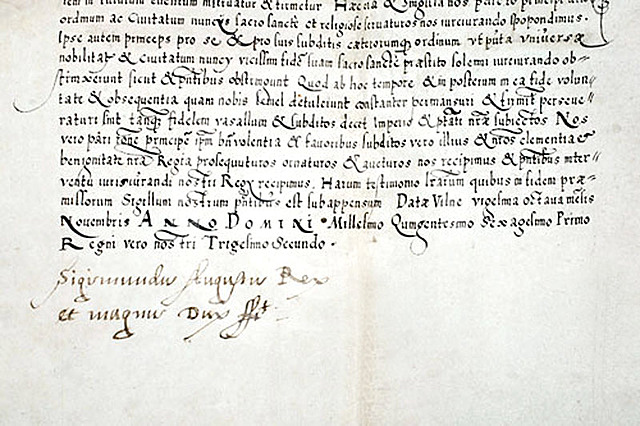 ordinum ac Civitatum nuncijs sacro sancte et religiose servaturos nos iureiurando spopondimus.
Ipse autem princeps pro se & pro suis subditis cæterorumq ordinum utputa universæ
nobilitatis & civitatum nuncij vicissim fidē suam sacro sancte præstito solemni iureiurando ob-
strinxerunt sicut & pñtibus obstringunt Quod ab hoc tempore & in posterum in ea fide volun-
tate & obsequentia quam nobis semel detulerunt constanter permansuri & firmit perseve-
raturi sint tanq fidelem vasallum & subditos decet Imperio & ptāti nrǣ subiectos Nos
vero pari rōne principē ipm bñvolentia & favoribus subditos vero illius & nros clementia &
benignitate nrā Regia prosequuturos ornaturos & aucturos nos recipimus & pñtibus inter-
ventu iurisiurandi nostri Regij recipimus. Harum testimonio lrarum quibus in fidem præ-
missorum Sigillum nostrum pñtibus est subappensum Datæ Vilne vigesima octava mesis
Novembris ANNO DOMINI Millesimo Quingentesimo Sexagesimo Primo
Regni vero nostri Trigesimo Secundo.
Sigismundus Augustus Rex
et magnus Dux